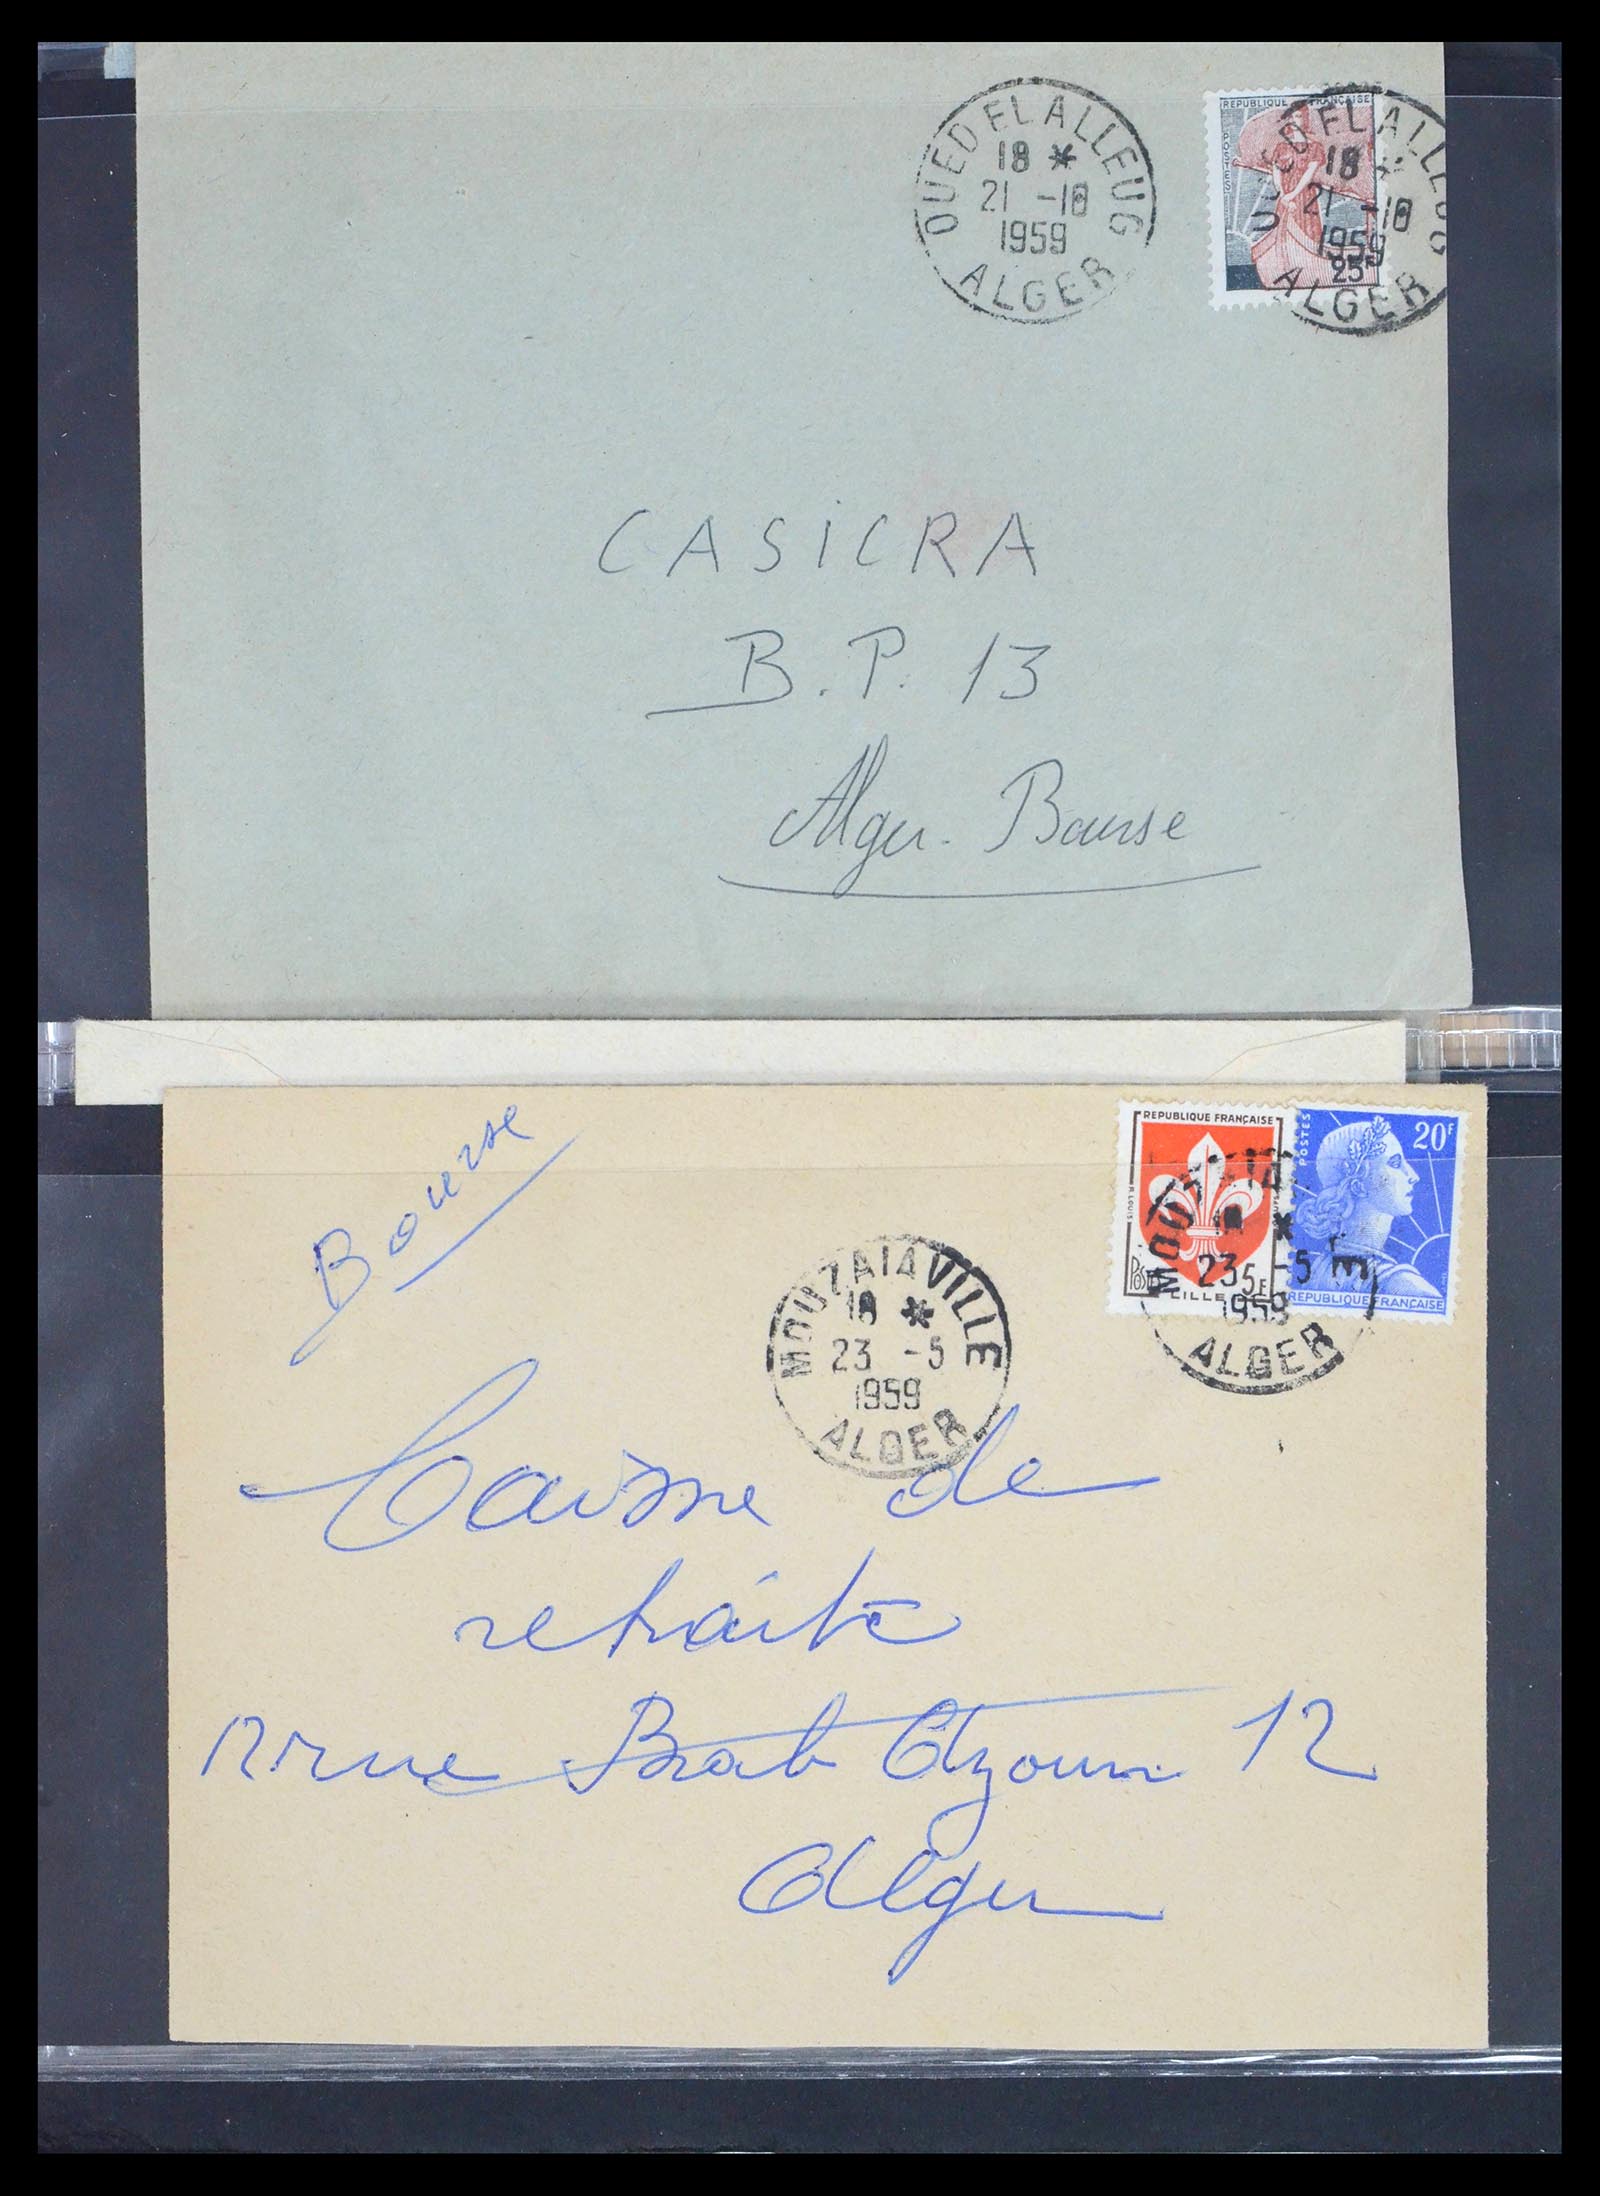 OUED EL ALLEUG
18 *
21 -10
1959
ALGER
REPUBLIQUE FRANÇAISE
POSTES
25F
OUED EL ALLEUG
18 *
21 -10
1959
ALGER
CASiCRA
B.P. 13
Alger. Bourse
Bourse
REPUBLIQUE FRANÇAISE
R. LOUIS
POSTES
LILLE
5F
POSTES
20F
REPUBLIQUE FRANÇAISE
23 -5
1959
ALGER
MOUZAIAVILLE
18 *
23 -5
1959
ALGER
Caisse de
retraite
12 rue Bab Azoun 12
Alger